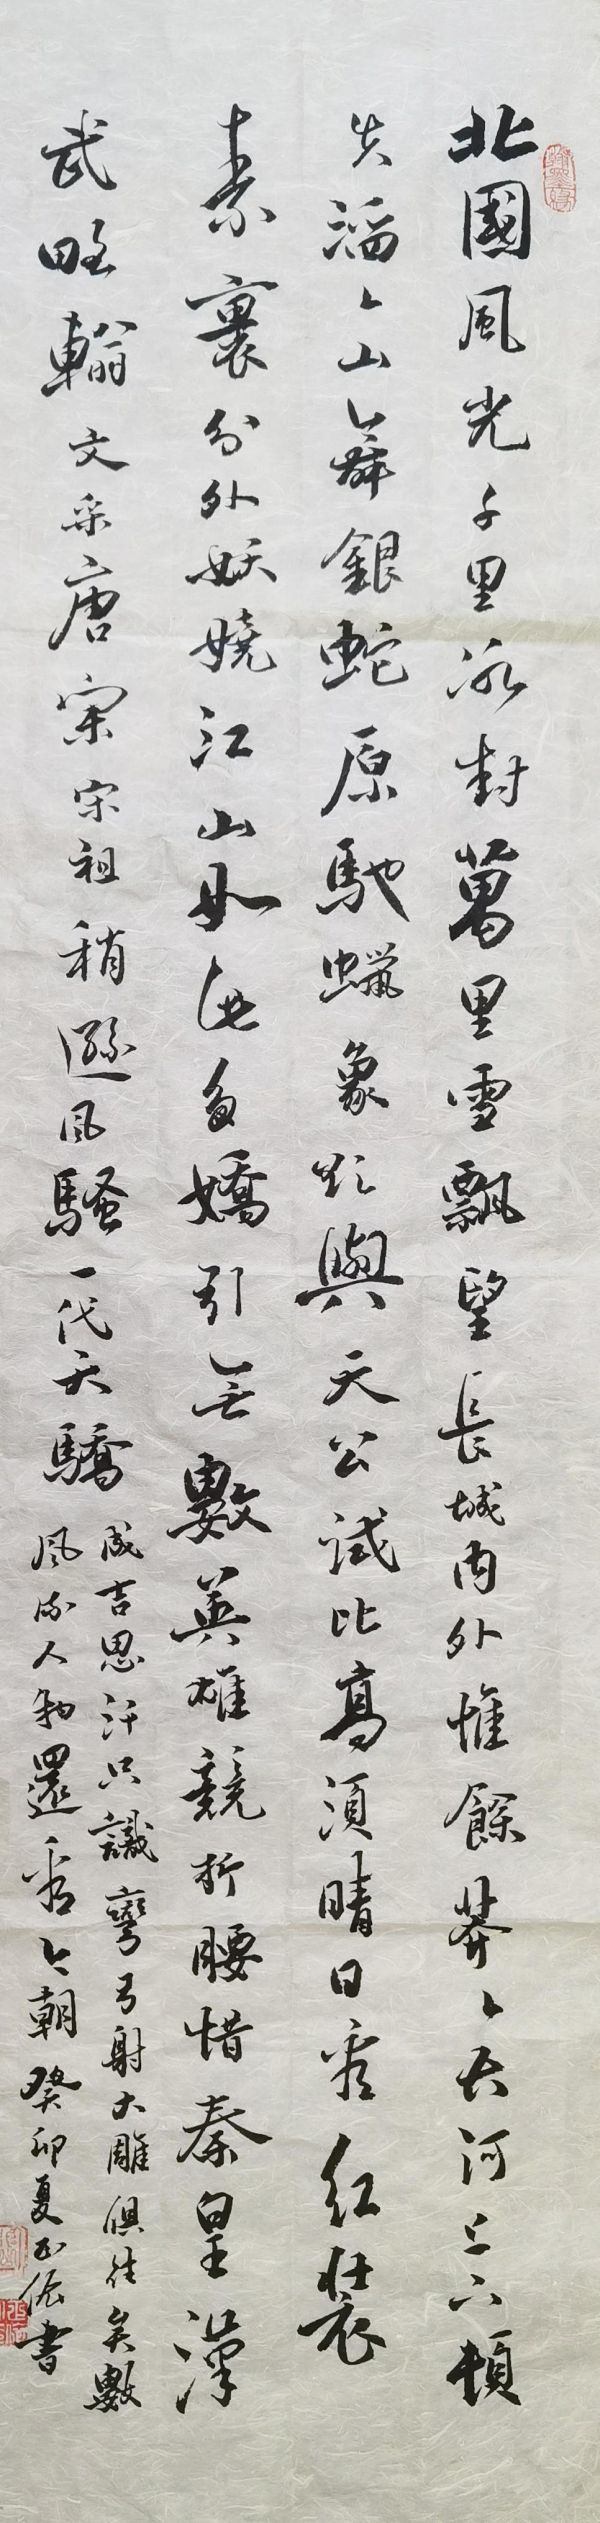 北國風光千里冰封萬里雪飄望長城內外惟餘莽々大河上下頓
失滔々山舞銀蛇原馳蠟象欲與天公試比高須晴日看紅裝
素裹分外妖嬈江山如此多嬌引無數英雄競折腰惜秦皇漢
武略輸文采唐宗宋祖稍遜風騷一代天驕
成吉思汗只識彎弓射大雕俱往矣數
風流人物還看今朝癸卯夏正依書